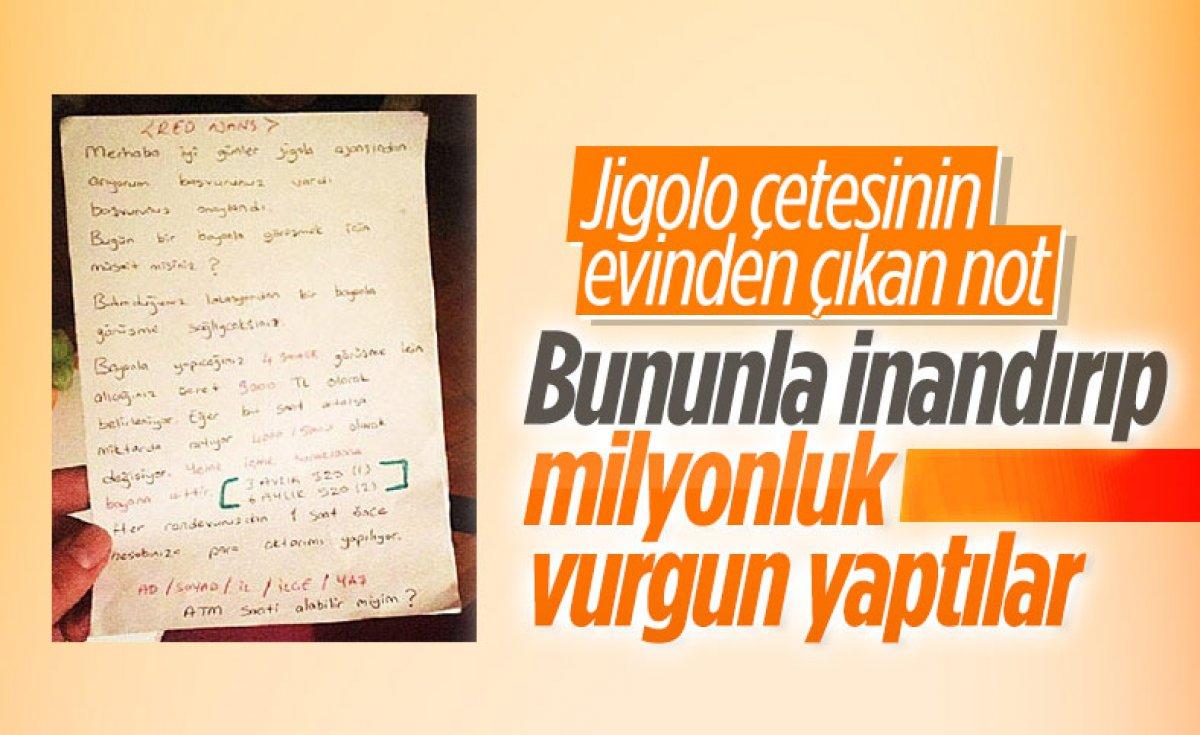 <RED AJANS>
Merhaba iyi günler jigola ajansından
arıyorum başvurunuz vardı
başvurunuz onaylandı.
Bugün bir bayanla görüşmek için
müsait misiniz ?
Bulunduğunuz lokasyondan bir bayanla
görüşme sağlıycaksınız.
Bayanla yapıcağınız 4 saatlik görüşme için
alıcağınız ücret 3000 TL olarak
belirleniyor. Eğer bu saat artarsa
miktarda artıyor 4000/5000 olarak
değişiyor. Yeme içme
bayana aittir. [ 3 AYLIK 320 (1)
6 AYLIK 520 (2) ]
Her randevunuzdan 1 saat önce
hesabınıza para aktarımı yapılıyor.
AD / SOYAD / İL / İLÇE / YAŞ
ATM saati alabilir miyim ?
Jigolo çetesinin
evinden çıkan not
Bununla inandırıp
milyonluk
vurgun yaptılar